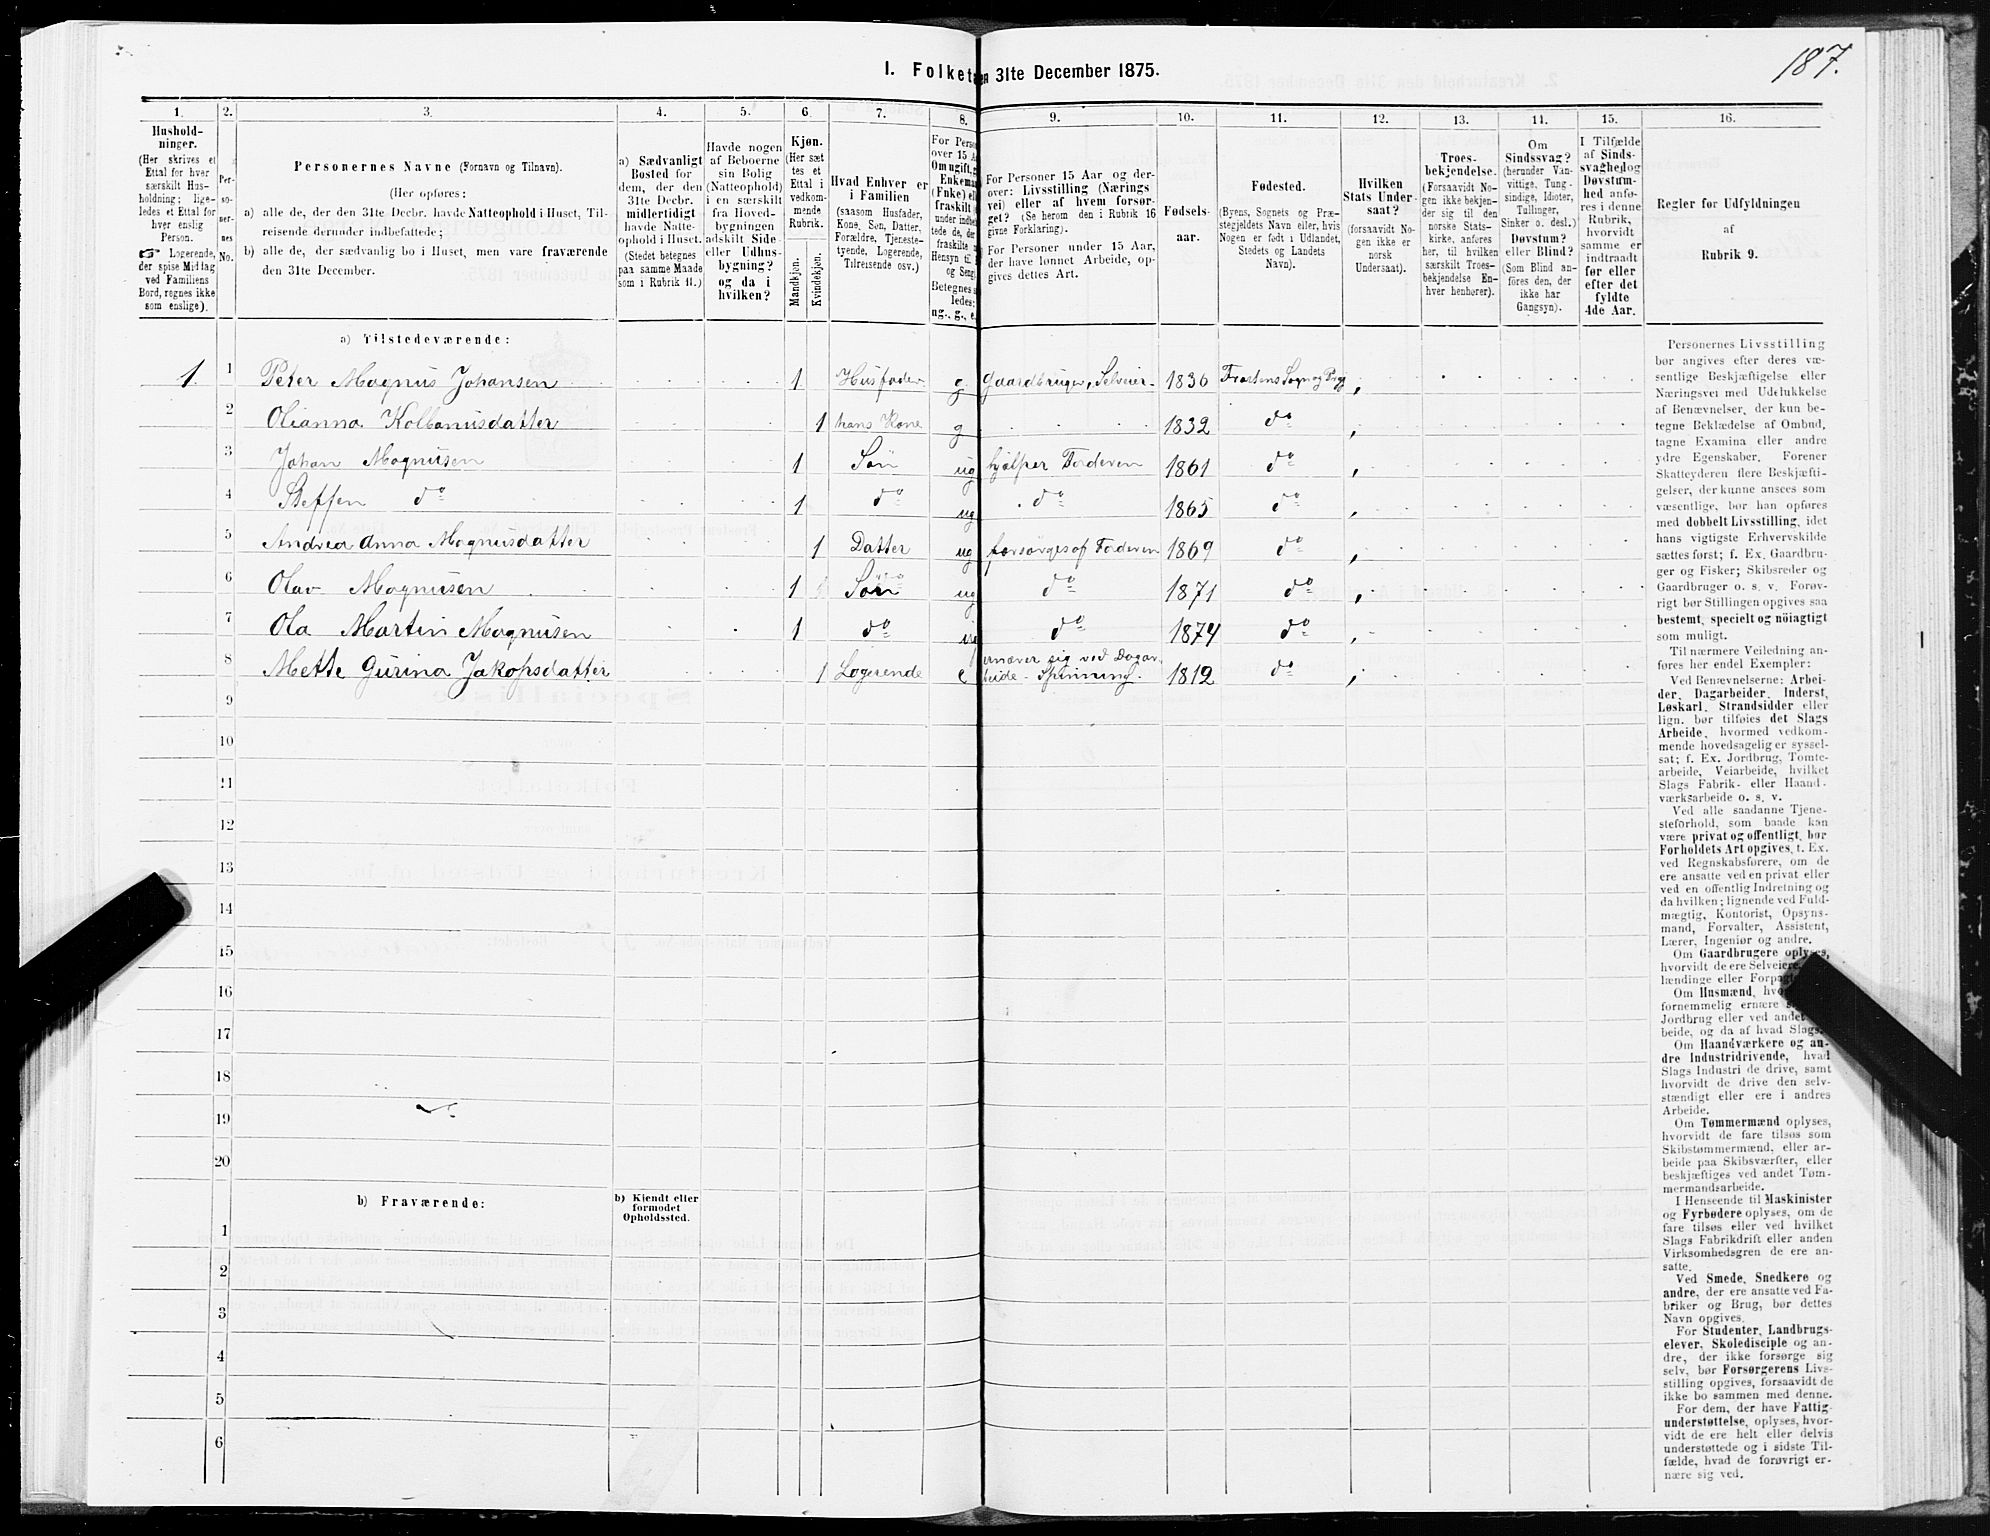 187.
I. Folketa en 31te December 1875.
1. 2. 3. 4. 5. 6. 7. 8. 9. 10. 11. 12. 13. 14. 15. 16.
Hushold-
ninger.
(Her skrives et
Ettal for hver
særskilt Hus-
holdning; lige-
ledes et Ettal for
hver enslig
Person.
☞ Logerende,
der spise Middag
ved Familiens
Bord, regnes ikke
som enslige).
Per-
so-
ner-
nes
No.
Personernes Navne (Fornavn og Tilnavn).
(Her opføres:
a) alle de, der den 31te Decbr. havde Natteophold i Huset, Til-
reisende derunder indbefattede;
b) alle de, der sædvanlig bo i Huset, men vare fraværende
den 31te December.
a) Sædvanligt
Bosted for
dem, der den
31te Decbr.
midlertidigt
havde Natte-
ophold i Huset.
(Stedet betegnes
paa samme Maade
som i Rubrik 11.)
Havde nogen
af Beboerne
sin Bolig
(Natteophold)
i en særskilt
fra Hoved-
bygningen
adskilt Side-
eller Udhus-
bygning?
og da i
hvilken?
Kjøn.
(Her sæt
tes et
Ettal i
vedkom-
mende
Rubrik.
Mandkjøn.
Kvindekjøn.
Hvad Enhver er
i Familien
(saasom Husfader,
Kone, Søn, Datter,
Forældre, Tjeneste-
tyende, Logerende,
Tilreisende osv.)
For Perso
over 15 A
Om ugift, g
Enkema
(Enke) ell
fraskilt
under indbe
tede de, de
fraskilte
Hensyn til
og Seng
Betegnes s
ledes:
ug., g., e.
For Personer 15 Aar og der-
over: Livsstilling (Nærings
vei) eller af hvem forsør-
get? (Se herom den i Rubrik 16
givne Forklaring).
For Personer under 15 Aar,
der have lønnet Arbeide, op-
gives dettes Art.
Fødsels-
aar.
Fødested.
(Byens, Sognets og Præ-
stegjeldets Navn eller, hvis
Nogen er født i Udlandet,
Stedets og Landets
Navn).
Hvilken
Stats Under-
saat?
(forsaavidt No-
gen ikke er
norsk
Undersaat).
Troes-
bekjendelse.
(Forsaavidt No-
gen ikke bekjen-
der sig til den
norske Stats-
kirke, anføres
her, til hvilken
særskilt Troes-
bekjendelse En-
hver henhører).
Om
Sindssvag?
(herunder Van-
vittige, Tung-
sindige, Idioter,
Tullinger,
Sinker o. desl.)
Døvstum?
eller Blind?
(Som Blind an-
føres den, der
ikke har
Gangsyn).
I Tilfælde
af Sinds-
svaghed og
Døvstum-
hed anfø-
res i denne
Rubrik,
hvorvidt
samme er
indtraadt
før eller
efter det
fyldte
4de Aar.
Regler for Udfyldningen
af
Rubrik 9.
a) Tilstedeværende:
1. 1 Peter Magnus Johansen 1 Husfader g Gaardbruger, Selveier 1836 Frostens Sogn og Prgj
2 Olianna Kolbanusdatter 1 hans Kone g 1832 do
3 Johan Magnusen 1 Søn ug hjælper Forderen 1861 do
4 Steffen do 1 do ug do 1865 do
5 Andrea Anna Magnusdatter 1 Datter ug forsørges af Forderen 1869 do
6 Olav Magnusen 1 Søn ug do 1871 do
7 Ola Martin Magnusen 1 do ug do 1874 do
8 Mette Gurina Jakopsdatter 1 Logerende e ernærer sig ved Dagar-
beide - Spinning. 1812 do
9
10
11
12
13
14
15
16
17
18
19
20
b) Fraværende:
b) Kjendt eller
formodet
Opholdssted.
1
2
3
4
5
6
Personernes Livsstilling
bør angives efter deres væ-
sentlige Beskjæftigelse eller
Næringsvei med Udelukkelse
af Benævnelser, der kun be-
tegne Beklædelse af Ombud,
tagne Examina eller andre
ydre Egenskaber. Forener
Skatteyderen flere Beskjæfti-
gelser, der kunne ansees som
væsentlige, bør han opføres
med dobbelt Livsstilling, idet
hans vigtigste Erhvervskilde
sættes først; f. Ex. Gaardbru-
ger og Fisker; Skibsreder og
Gaardbruger o. s. v. Forøv-
rigt bør Stillingen opgives saa
bestemt, specielt og nöiagtigt
som muligt.
Til nærmere Veiledning an-
føres her endel Exempler:
Ved Benævnelserne: Arbei-
der, Dagarbeider, Inderst,
Løskarl, Strandsidder eller
lign. bør tilføies det Slags
Arbeide, hvormed vedkom-
mende hovedsagelig er syssel-
sat; f. Ex. Jordbrug, Tomte-
arbeide, Veiarbeide, hvilket
Slags Fabrik- eller Haand-
værksarbeide o. s. v.
Ved alle saadanne Tjene-
steforhold, som baade kan
være privat og offentligt, bør
Forholdets Art opgives, t. Ex.
ved Regnskabsførere, om de
ere ansatte ved en privat eller
ved en offentlig Indretning og
da hvilken; lignende ved Fuld-
mægtig, Kontorist, Opsyns-
mand, Forvalter, Assistent,
Lærer, Ingeniør og andre.
Om Gaardbrugere oplyses,
hvorvidt de ere Selveiere
lændinge eller Forpagt
Om Husmænd, hvo
fornemmelig ernære s
Jordbrug eller ved andet
beide, og da af hvad Slags.
Om Haandværkere og an-
dre Industridrivende, hvad
Slags Industri de drive, samt
hvorvidt de drive den selv-
stændigt eller ere i andres
Arbeide.
Om Tømmermænd oplyses,
hvorvidt de fare tilsøs som
Skibstømmermænd, eller ar-
beide paa Skibsværfter, eller
beskjæftiges ved andet Tøm-
mermandsarbeide.
I Henseende til Maskinister
og Fyrbødere oplyses, om de
fare tilsøs eller ved hvilket
Slags Fabrikdrift eller anden
Virksomhedsgren de ere an-
satte.
Ved Smede, Snedkere og
andre, der ere ansatte ved Fa-
briker og Brug, bør dettes
Navn opgives.
For Studenter, Landbrugs-
elever, Skoledisciple og an-
dre, der ikke forsørge sig
selv, bør Forsørgerens Livs-
stilling opgives, forsaavidt de
ikke bo sammen med denne.
For dem, der have Fattig-
understøttelse, oplyses, hvor-
vidt de ere helt eller delvis
understøttede og i sidste Til-
fælde, hvad de forøvrigt er-
nære sig ved.